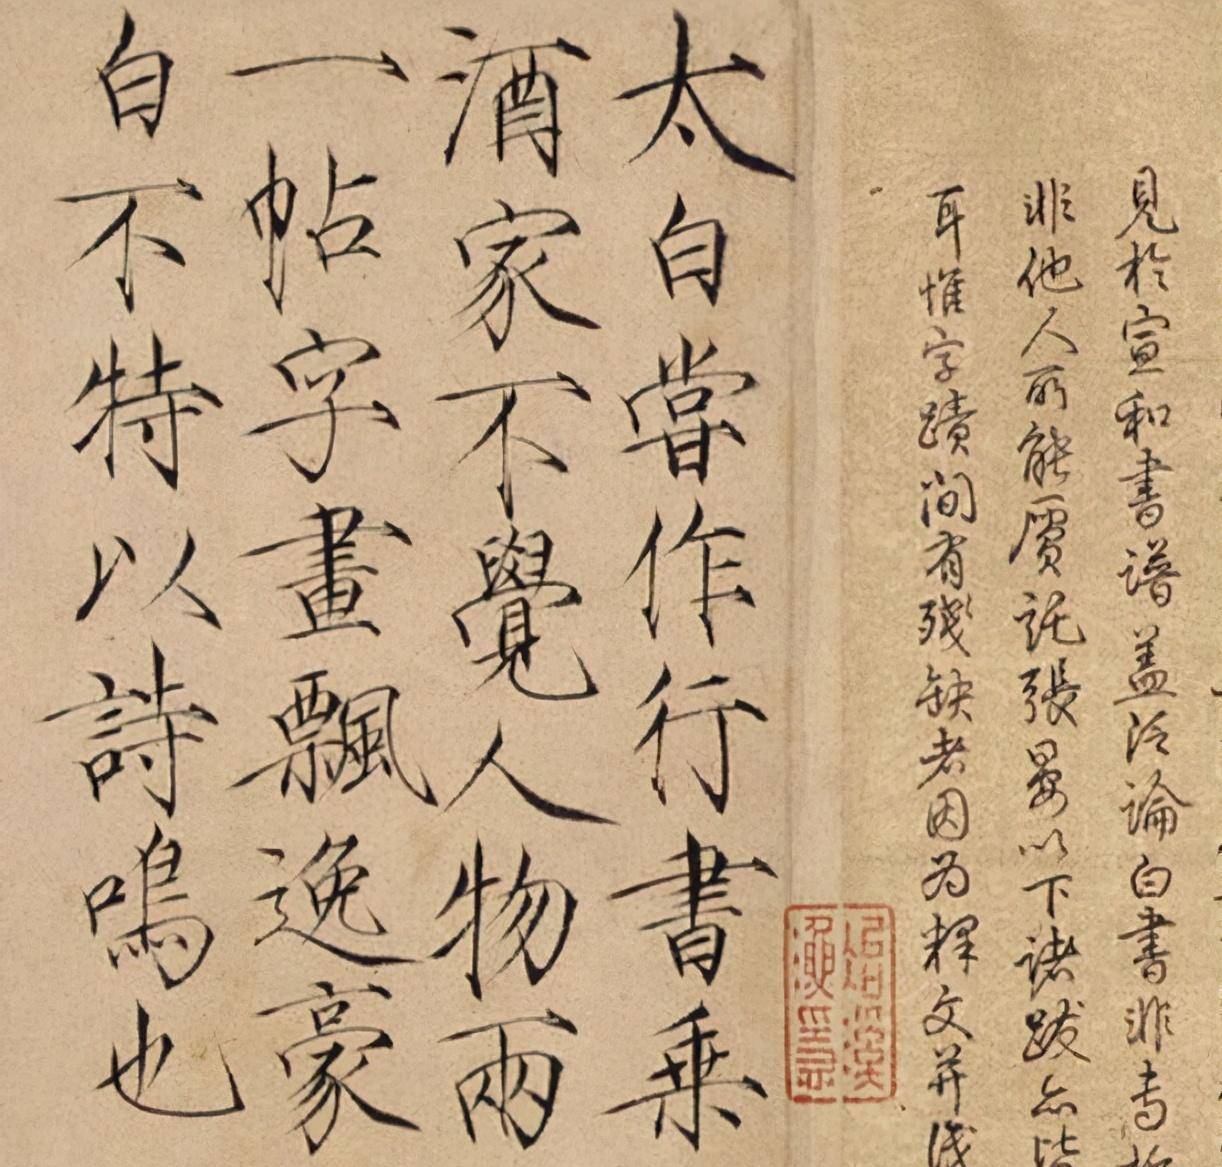 見於宣和書譜蓋泛論白書非專
非他人所能贋託張晏以下諸跋亦皆
耳惟字蹟間有殘缺者因為釋文并識
太白嘗作行書乘
酒家不覺人物兩
一帖字畫飄逸豪
白不特以詩鳴也